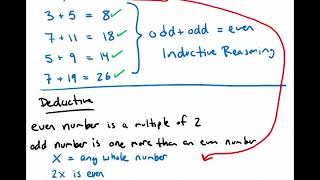 3 + 5 = 8 ✓
7 + 11 = 18 ✓
5 + 9 = 14 ✓
7 + 19 = 26 ✓
odd + odd = even
Inductive Reasoning
Deductive
even number is a multiple of 2
odd number is one more than an even number
X = any whole number
2x is even